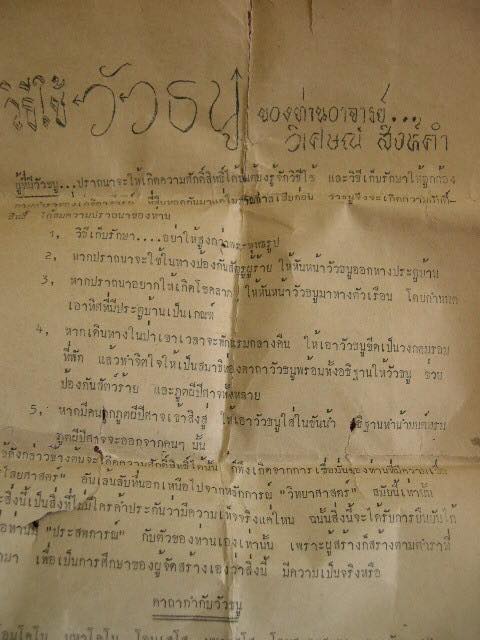 วิธีใช้ วัวธนู ของท่านอาจารย์...
วิเศษณ์ สิงห์คำ
ผู้ที่มีวัวธนู...ปรารถนาจะให้เกิดความศักดิ์สิทธิ์ได้นั้นต้องรู้จักวิธีใช้ และวิธีเก็บรักษาให้ถูกต้อง
สิทธิ์ ได้ตามความปรารถนาของท่าน
1, วิธีเก็บรักษา....อย่าให้สูงกว่าพระพุทธรูป
2, หากปรารถนาจะใช้ในทางป้องกันศัตรูผู้ร้าย ให้หันหน้าวัวธนูออกทางประตูบ้าน
3, หากปรารถนาอยากให้เกิดโชคลาภ ให้หันหน้าวัวธนูมาทางตัวเรือน โดยกำหนด
เอาทิศที่มีประตูบ้านเป็นเกณฑ์
4, หากเดินทางในป่าเอาเวลาจะพักแรมกลางคืน ให้เอาวัวธนูขีดเป็นวงกลมรอบ
ที่พัก แล้วทำจิตใจให้เป็นสมาธิท่องคาถาวัวธนูพร้อมทั้งอธิฐานให้วัวธนู ช่วย
ป้องกันสัตว์ร้าย และภูตผีปีศาจทั้งหลาย
5, หากมีคนถูกภูตผีปีศาจเข้าสิงสู่ ให้เอาวัวธนูใส่ในขันน้ำ อธิฐานทำน้ำมนต์
ภูตผีปีศาจจะออกจากคนๆ นั้น
ดังกล่าวข้างต้นจะเกิดความศักดิ์สิทธิ์ได้นั้น ก็พึงเกิดจากการ เชื่อมั่นของท่านที่มีความ
"ไสยศาสตร์" อันเร้นลับที่นอกเหนือไปจากหลักการณ์ "วิทยาศาสตร์" สมัยนี้เท่านั้น
สิ่งนี้เป็นสิ่งที่ไม่มีใครค้ำประกันว่ามีความเท็จจริงแค่ไหน ฉนั้นสิ่งนี้จะได้รับการยืนยันได้
ท่านมี "ประสพการณ์" กับตัวของท่านเองเท่านั้น เพราะผู้สร้างก็สร้างตามตำราที่
มา เพื่อเป็นการศึกษาของผู้จัดสร้างเองว่าสิ่งนี้ มีความเป็นจริงหรือ
คาถากำกับวัวธนู